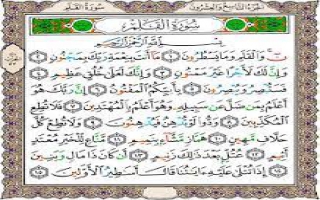 سُورَةُ القَلَمِ
الجُزءُ التَّاسِعُ وَالعِشرُونَ
سُورَةُ القَلَمِ
بِسْمِ اللَّهِ الرَّحْمَٰنِ الرَّحِيمِ
نٓ وَالْقَلَمِ وَمَا يَسْطُرُونَ ١ مَا أَنْتَ بِنِعْمَةِ رَبِّكَ بِمَجْنُونٍ ٢
وَإِنَّ لَكَ لَأَجْرًا غَيْرَ مَمْنُونٍ ٣ وَإِنَّكَ لَعَلَىٰ خُلُقٍ عَظِيمٍ ٤
فَسَتُبْصِرُ وَيُبْصِرُونَ ٥ بِأَييِّكُمُ الْمَفْتُونُ ٦ إِنَّ رَبَّكَ هُوَ
أَعْلَمُ بِمَنْ ضَلَّ عَنْ سَبِيلِهِ وَهُوَ أَعْلَمُ بِالْمُهْتَدِينَ ٧ فَلَا تُطِعِ
الْمُكَذِّبِينَ ٨ وَدُّوا لَوْ تُدْهِنُ فَيُدْهِنُونَ ٩ وَلَا تُطِعْ كُلَّ
حَلَّافٍ مَهِينٍ ١٠ هَمَّازٍ مَشَّاءٍ بِنَمِيمٍ ١١ مَنَّاعٍ لِلْخَيْرِ مُعْتَدٍ
أَثِيمٍ ١٢ عُتُلٍّ بَعْدَ ذَٰلِكَ زَنِيمٍ ١٣ أَنْ كَانَ ذَا مَالٍ وَبَنِينَ
١٤ إِذَا تُتْلَىٰ عَلَيْهِ آيَاتُنَا قَالَ أَسَاطِيرُ الْأَوَّلِينَ ١٥